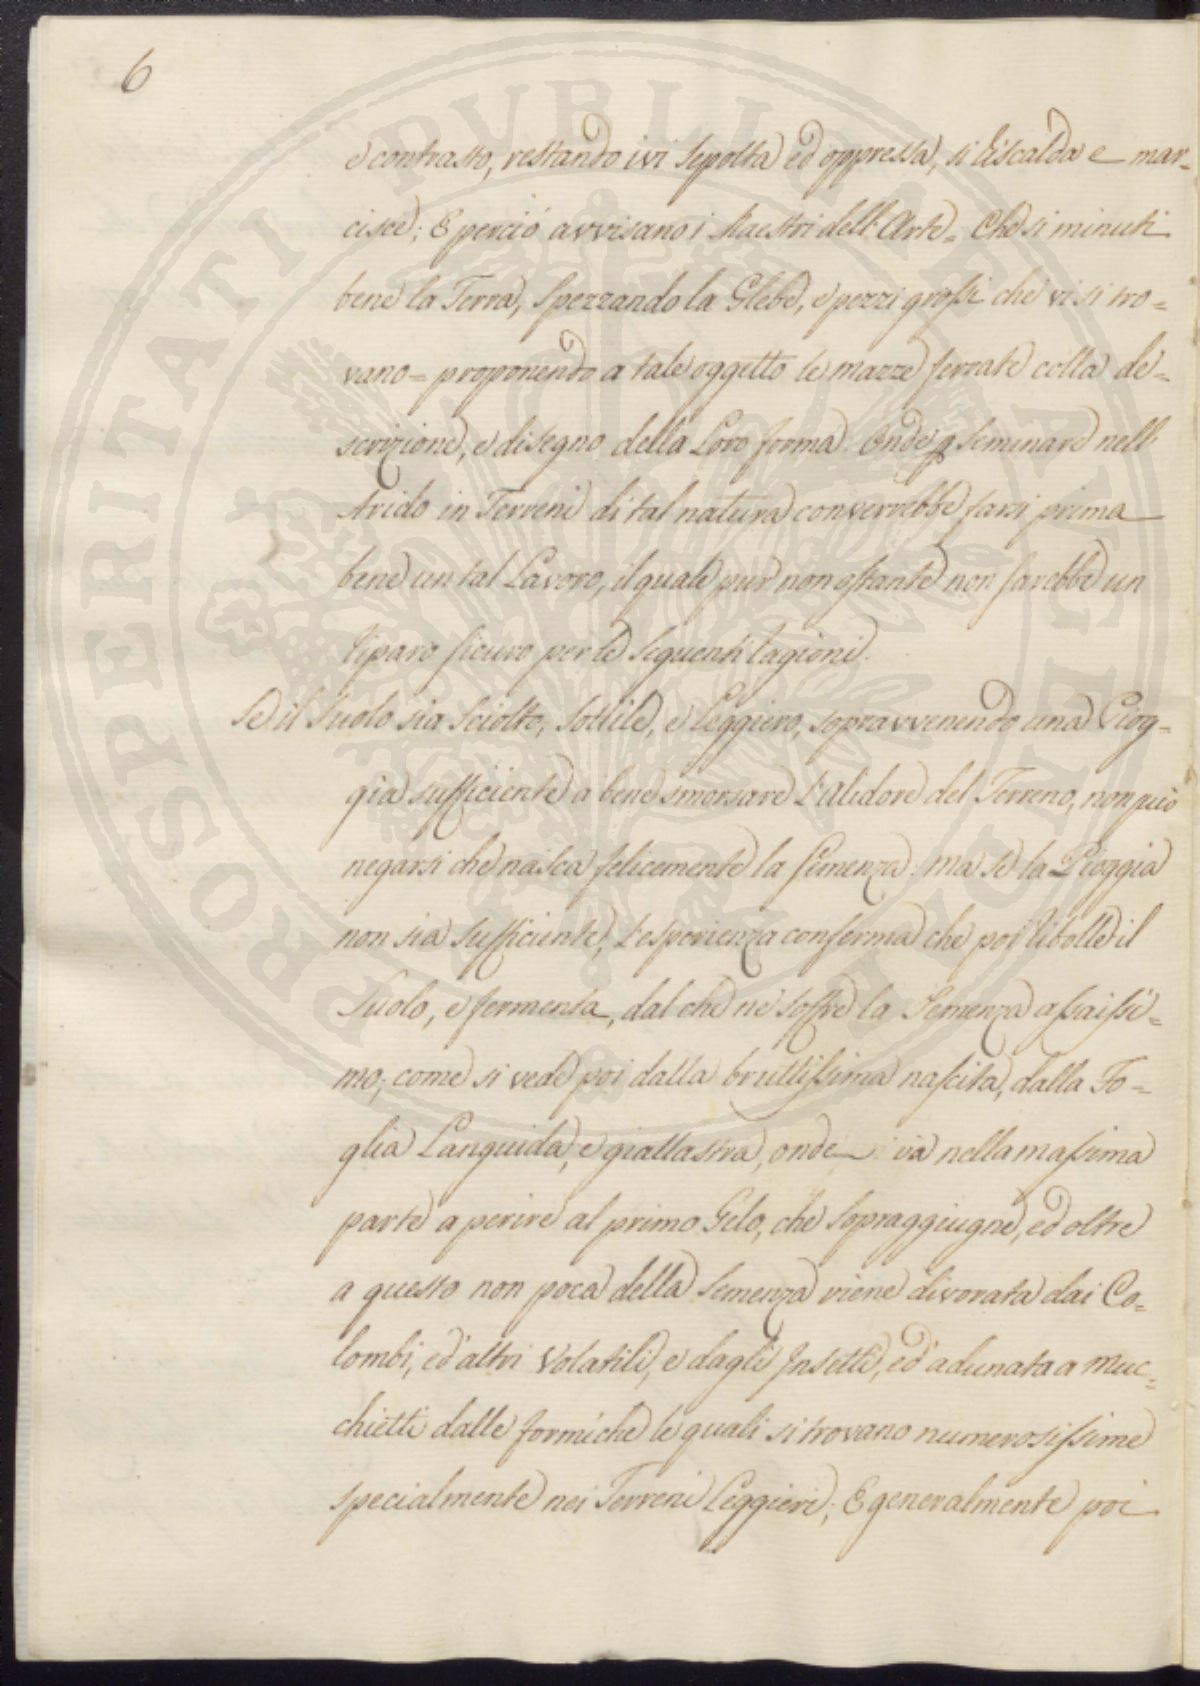 6
e contrasto, restando ivi sepolta ed oppressa, si riscalda e mar-
cisce; E perciò avvisano i Maestri dell'Arte = Che si minuti
bene la Terra, spezzando la Glebe, e pezzi grossi che vi si tro=
vano = proponendo a tale oggetto le mazze ferrate colla de=
scrizione, e disegno della Loro forma. Onde p seminare nell'
Arido in Terreni di tal natura converrebbe farsi prima
bene un tal Lavoro, il quale pur non ostante non sarebbe un
riparo sicuro per le seguenti ragioni.
Se il Suolo sia sciolto, sottile, e leggiero, sopravvenendo una Piog=
gia sufficiente a bene smorsare l'alidore del Terreno, non può
negarsi che nasca felicemente la semenza: ma se la Pioggia
non sia sufficiente, l'esperienza conferma che poi ribolle il
Suolo, e fermenta, dal che ne soffre la Semenza assaissi=
mo; come si vede poi dalla bruttissima nascita, dalla Fo=
glia Languida, e giallastra, onde va nella massima
parte a perire al primo Gelo, che sopraggiugne, ed oltre
a questo non poca della semenza viene divorata dai Co=
lombi, ed altri Volatili, e dagli Insetti, ed adunata a muc=
chietti dalle formiche le quali si trovano numerosissime
specialmente nei Terreni Leggieri; E generalmente poi
PROSPERITATI PUBLICAE AUGENDAE